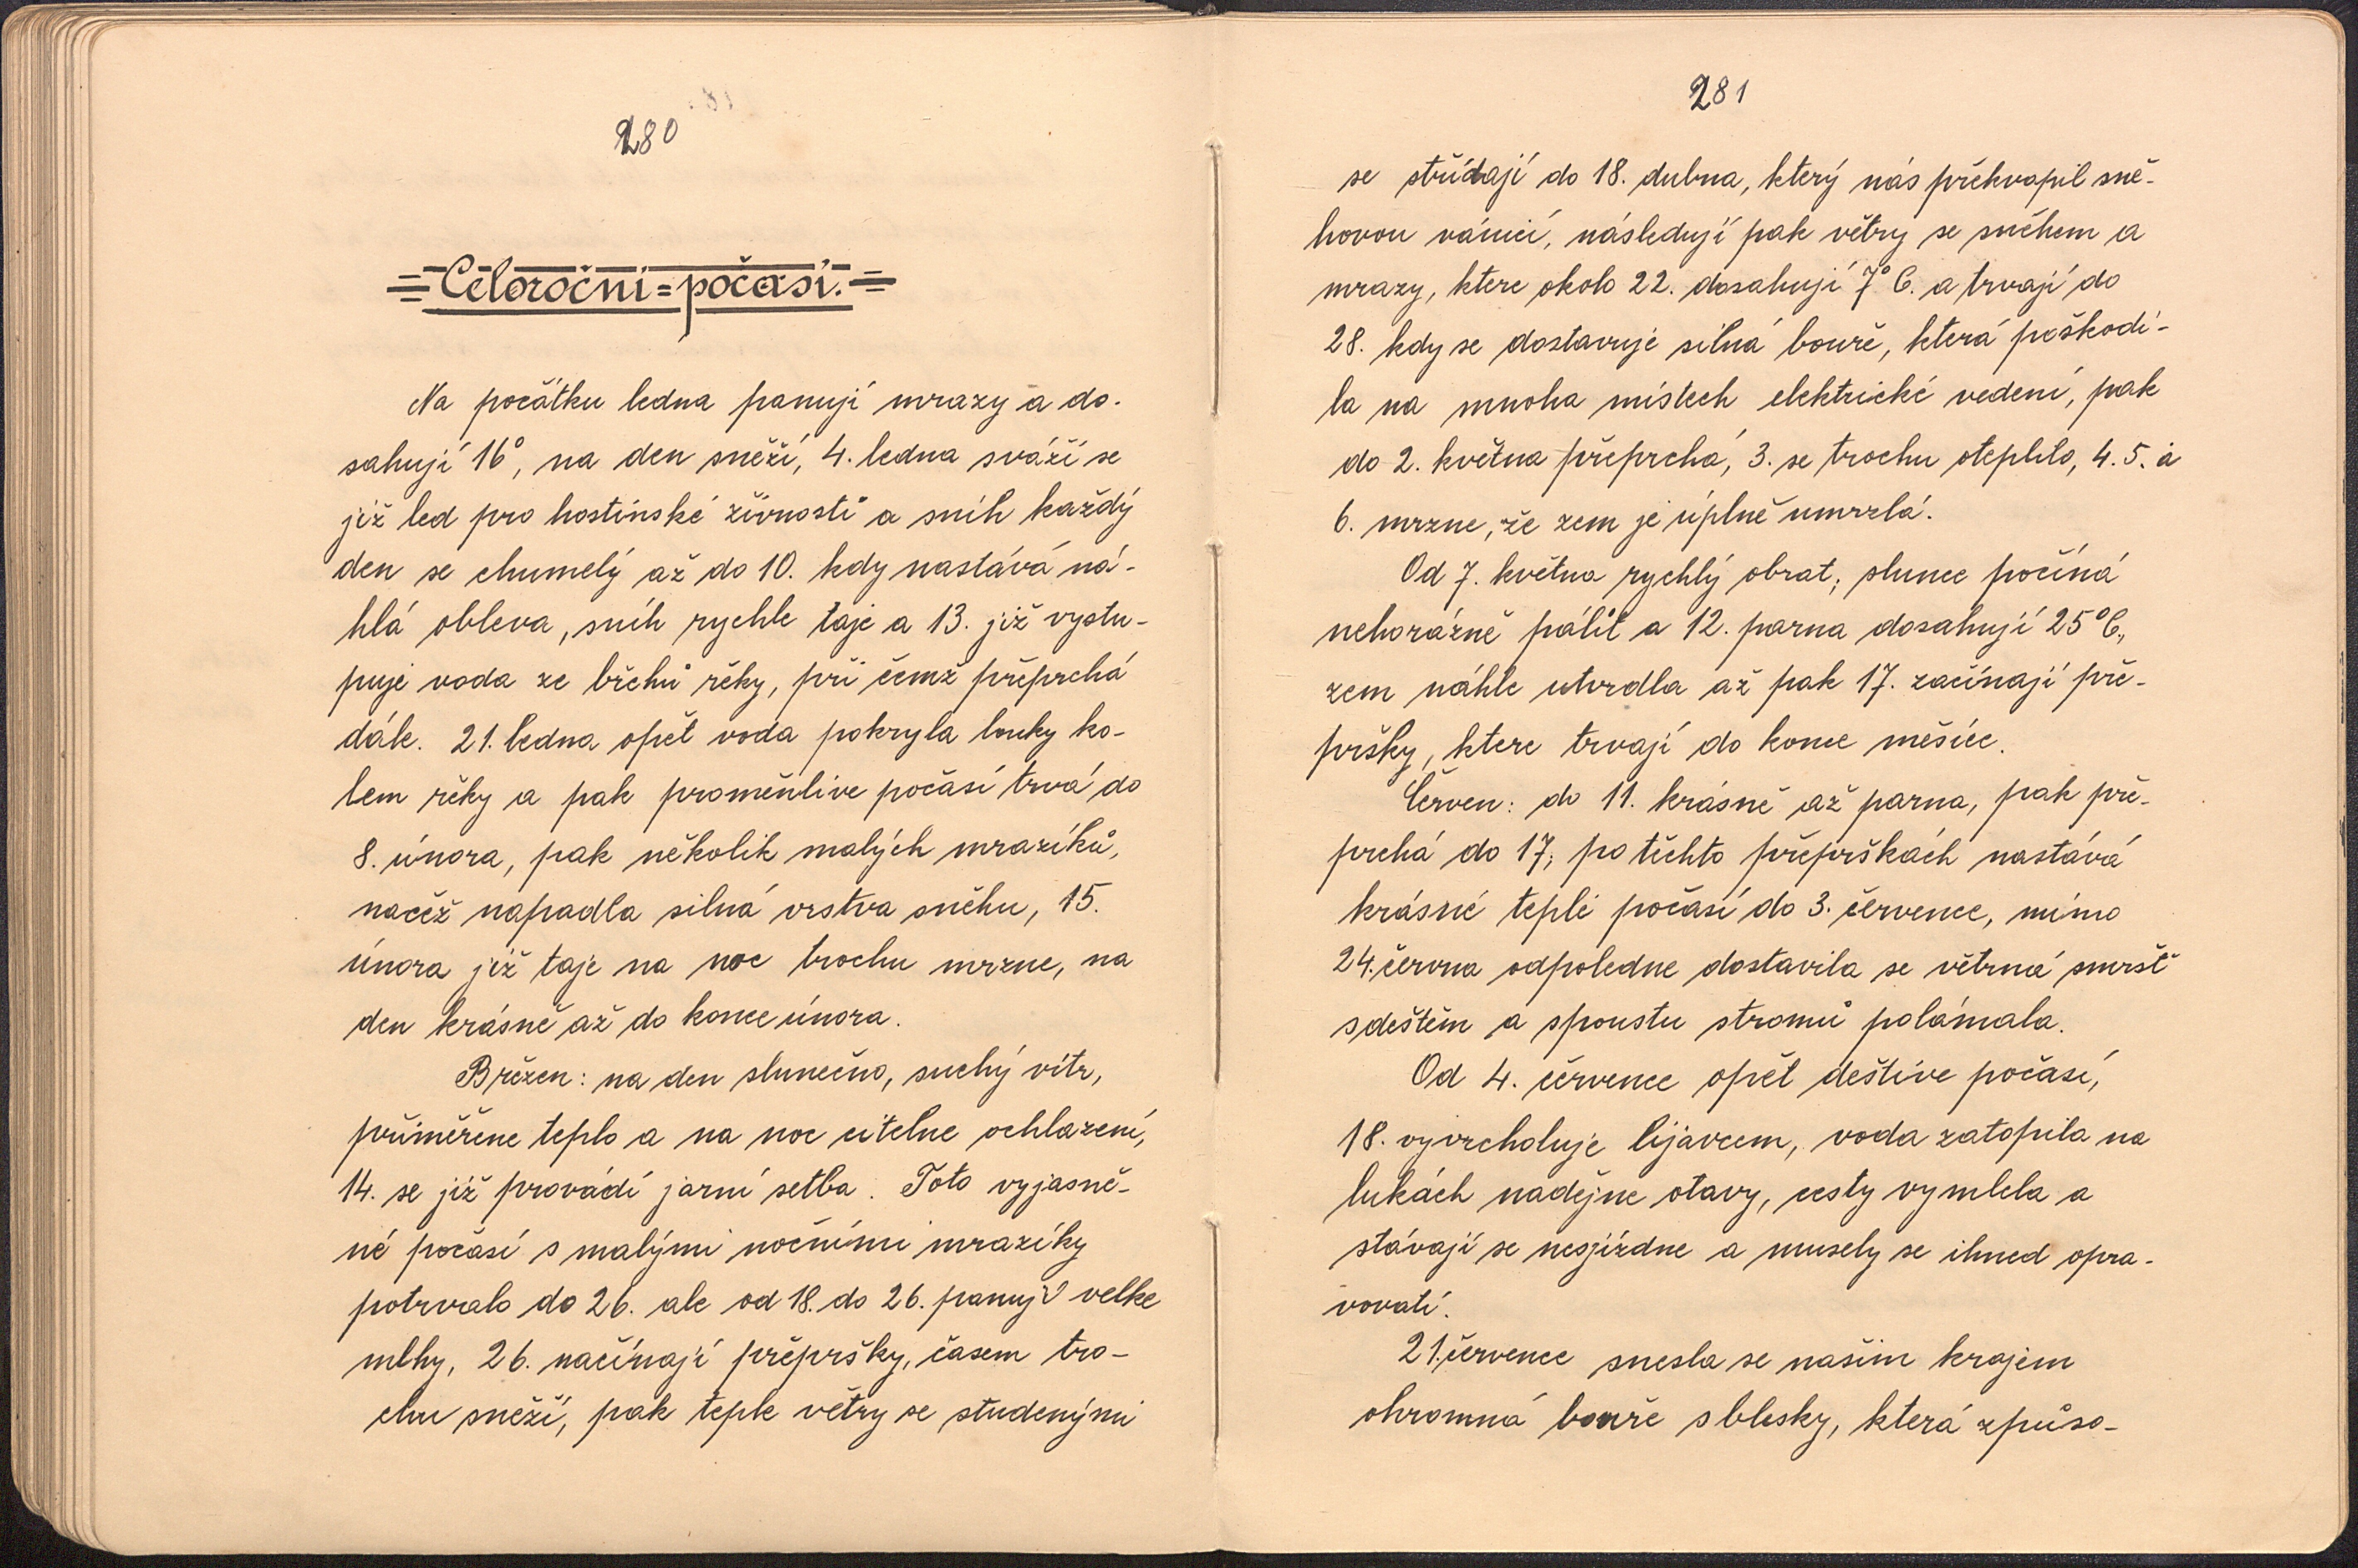 280
=Celoroční=počasí.=
Na počátku ledna panují mrazy a do-
sahují 16°, na den sněží, 4. ledna sváží se
již led pro hostinské živnosti a sníh každý
den se chumelý až do 10. kdy nastává ná-
hlá obleva, sníh rychle taje a 13. již vystu-
puje voda ze břehů řeky, při čemž přeprchá
dále. 21. ledna opět voda pokryla louky ko-
lem řeky a pak proměnlive počasí trvá do
8. února, pak několik malých mrazíků,
načež napadla silná vrstva sněhu, 15.
února již taje na noc trochu mrzne, na
den krásně až do konce února.
Březen: na den slunečno, suchý vítr,
přiměřene teplo a na noc citelne ochlazení,
14. se již provádí jarní setba. Toto vyjasně-
né počasí s malými nočními mrazíky
potrvalo do 26. ale od 18. do 26. panují velke
mlhy, 26. načínají přepršky, časem tro-
chu sněží, pak teple větry se studenými
281
se střídají do 18. dubna, který nás překvapil sně-
hovou vánicí, následují pak větry se sněhem a
mrazy, ktere okolo 22. dosahují 7° C. a trvají do
28. kdy se dostavuje silná bouře, která poškodi-
la na mnoha místech elektrické vedení, pak
do 2. května přeprchá, 3. se trochu oteplilo, 4. 5. a
6. mrzne, že zem je úplně umrzlá.
Od 7. května rychlý obrat; slunce počíná
nehorázně pálit a 12. parna dosahují 25° C.,
zem náhle utvrdla až pak 17. začínají pře-
pršky, ktere trvají do konce měsíce.
Červen: do 11. krásně až parna, pak pře-
prchá do 17; po těchto přeprškách nastává
krásné teplé počasí do 3. července, mimo
24. června odpoledne dostavila se větrná smršť
s deštěm a spoustu stromů polámala.
Od 4. července opět deštive počasí,
18. vyvrcholuje lijavcem, voda zatopila na
lukách nadějne otavy, cesty vymlela a
stávají se nesjízdne a musely se ihned opra-
vovati.
21. července snesla se našim krajem
ohromná bouře s blesky, která způso-